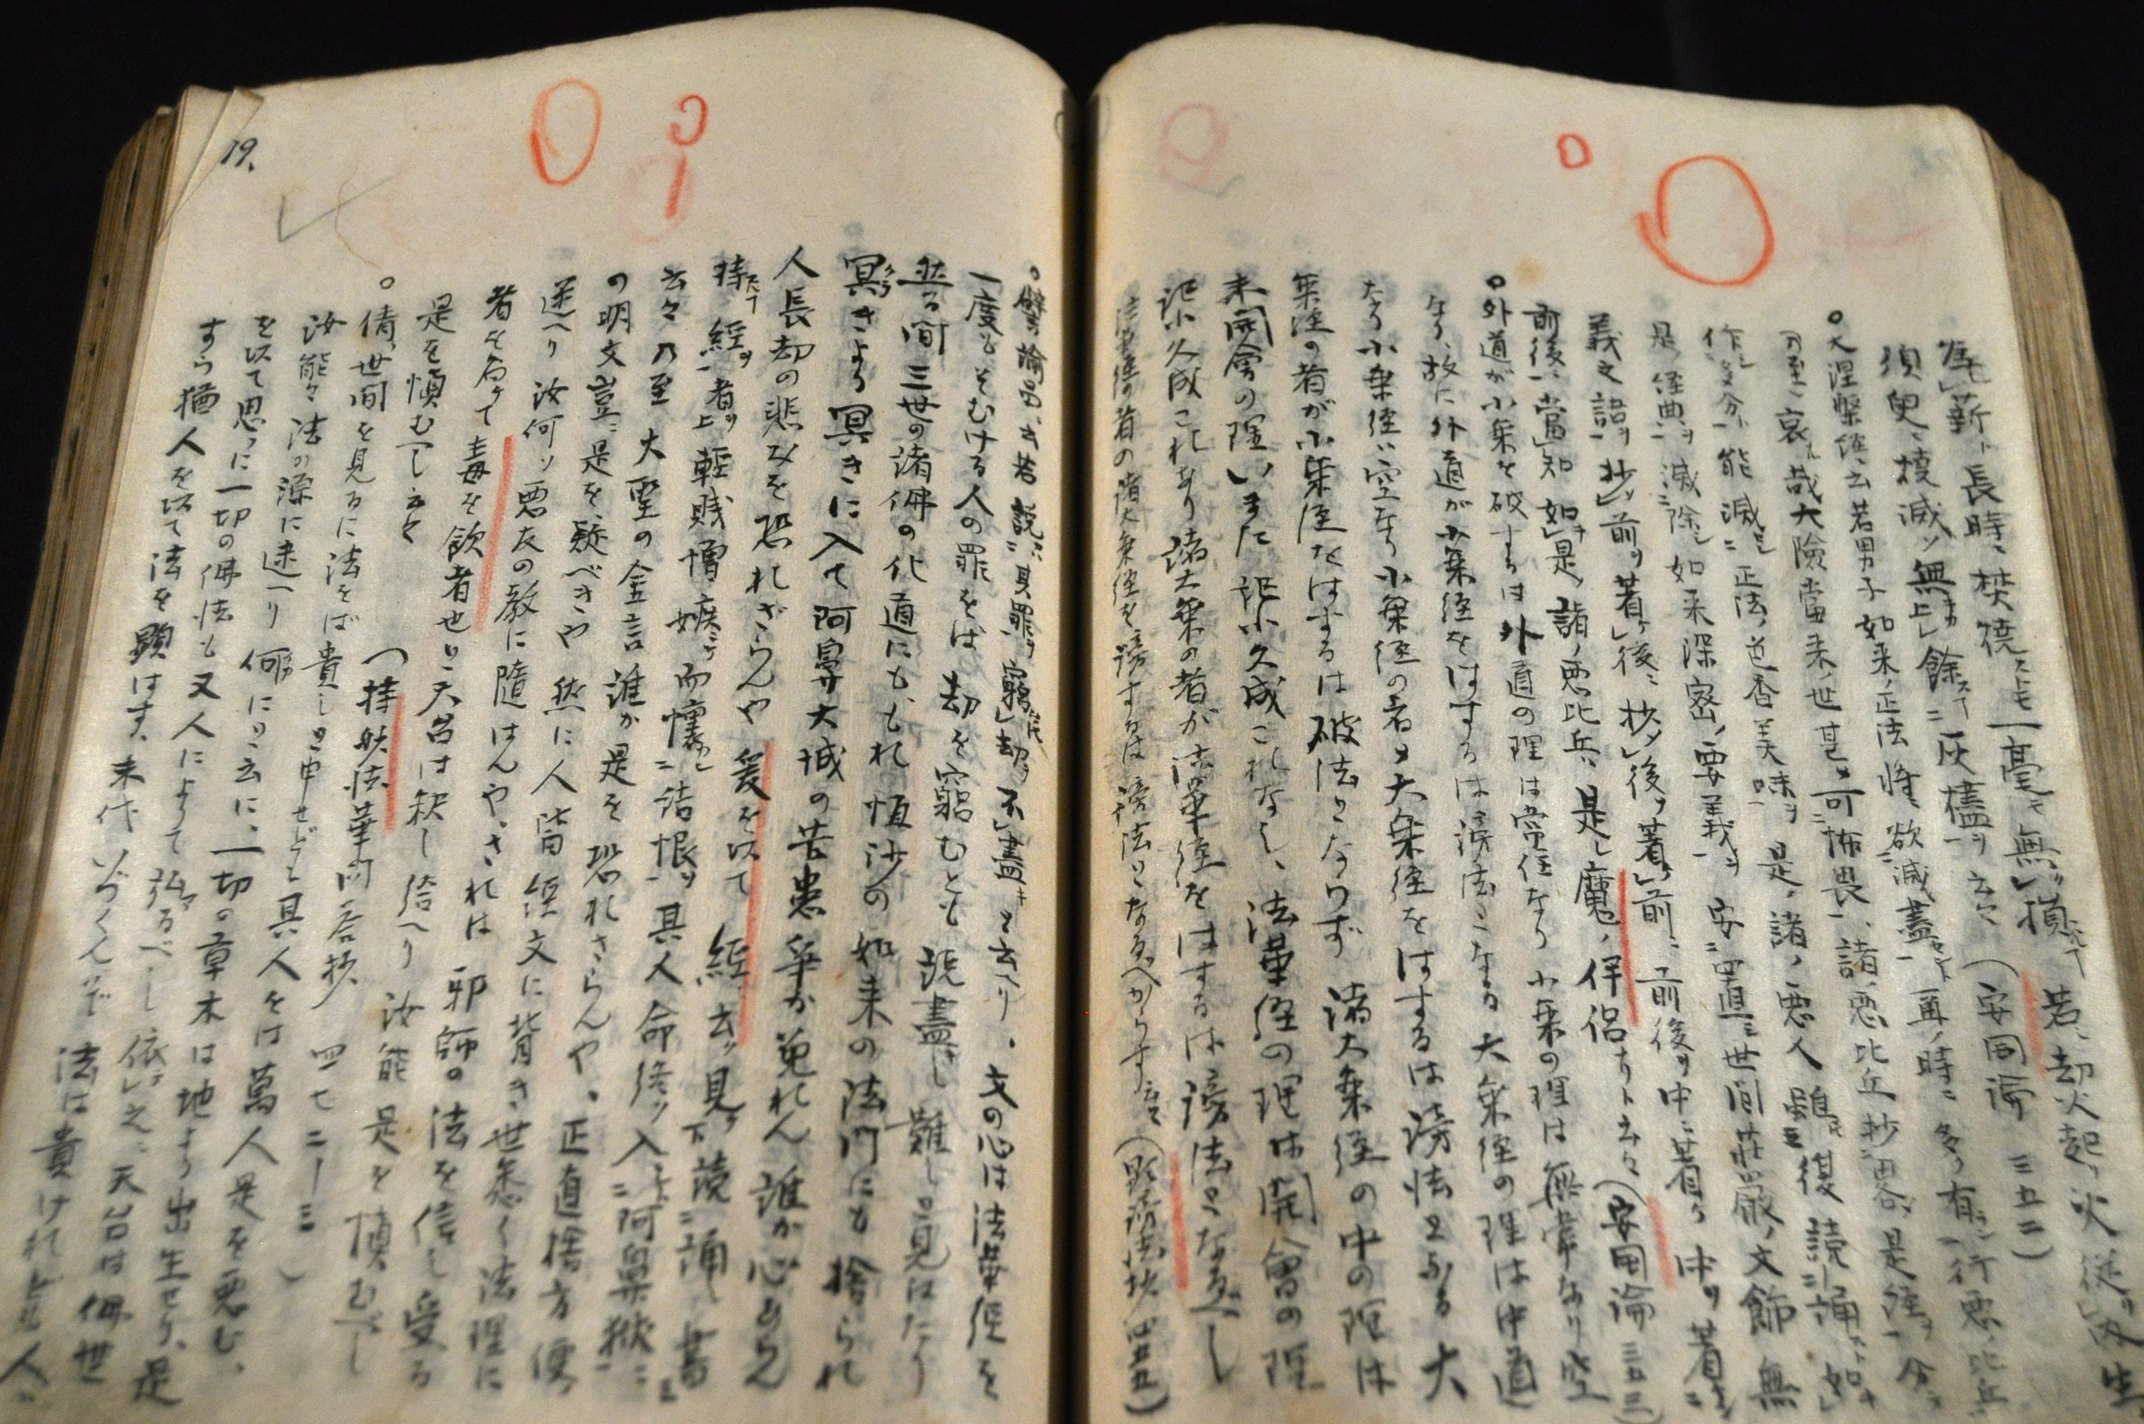 若シ劫火起ツ火従リ
焉」薪ト長時ニ焚焼スレトモ一毫モ無ク」損
須臾ニ模滅ソ無上」餘スコト灰燼ヲ云々(安国論 三五二)
○大涅槃経ニ云若男子如来ノ正法将ニ欲滅盡 再ノ時ニ多ク有行悪ノ比丘
乃至哀哉大險当来ノ世甚可怖畏 諸ノ悪比丘抄畧是経ヲ分
作多分ト能滅正法ノ色香美味ヲ是ノ諸ノ悪人雖復読誦如
是ノ経典ヲ滅除如来深密ノ要義ヲ安置世間荘厳ノ文飾無
義之語ヲ抄」前ヲ著」後ニ抄」後ヲ著」前ニ前後ヲ中ニ著ケ中ヲ著
前後ニ當」知如」是ノ諸ノ悪比丘ハ是レ魔ノ伴侶ナリト云々(安国論 三五三)
○外道が小乗を破するは外道の理は常住なり小乗の理は無常なり空
なり、故に外道が小乗経をはするは謗法となる大乗経の理は中道
なり小乗経は空なり小乗経の者が大乗経をはするは謗法となる大
乗経の者が小乗経をはするは破法とならず 諸大乗経の中の理は
未開會の理いまだ記小久成これなし、法華経の理は開會の理
記小久成これあり諸大乗の者が法華経をはするは謗法となるべし
法華経の者の諸大乗経を謗するは謗法となるべからす云々(顕謗法抄 四五五)
19.
○譬喩品ニ云若説ニ其罪ヲ窮」劫ヲ不」盡キと云へり、文の心は法華経を
一度もそむける人の罪をば 劫を窮むとも 説盡し難しと見はたり
然る間三世の諸佛の化道にももれ恒沙の如来の法門にも捨られ
冥きより冥きに入て阿鼻大城の苦患争か免れん誰か心あらん
人長劫の悲みを恐れざらんや 爰を以て 経ニ云ク見下読誦シ書
持スルコト経ヲ者ヲ上軽賤憎嫉シテ而懐結恨ヲ其人命終ソ入阿鼻獄ニ
云々乃至大聖の金言誰か是を恐れさらんや、正直捨方便
の明文豈ニ是を疑べきや 然に人皆経文に背き世悉く法理に
迷へり汝何ソ悪友の教に随はんや、されは邪師の法を信し受る
者を名けて毒を飲者也と天台は釈し給へり汝能是を慎むべし
是を慎むべし云々(持妙法華問答抄 四七二ー三)
○倩ニ世間を見るに法をば貴しと申せども其人をは萬人是を悪む、
汝能々法の源に迷へり何にと云に、一切の草木は地より出生せり、是
を以て思ふに一切の佛法も又人によりて弘るべし依」之ニ天台は佛世
すら猶人を以て法を顕はす、末代いづくんぞ法は貴けれとも人